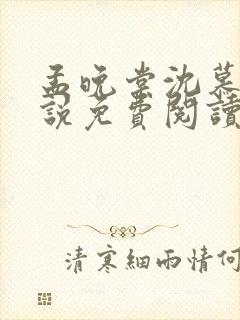 孟晚棠沈慕
說免費閱讀
清寒細雨情何